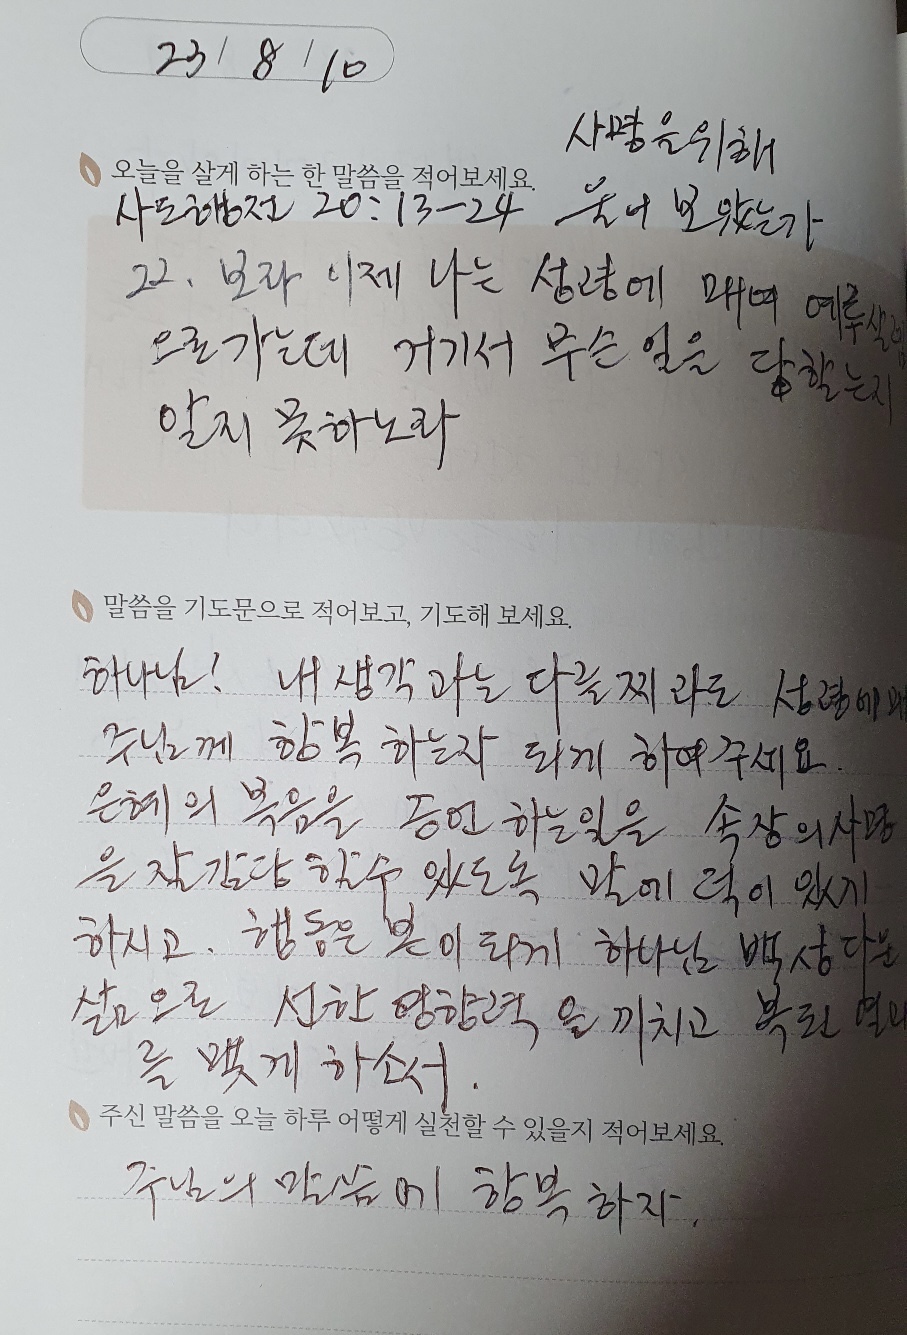 23 / 8 / 10
사명을위해
오늘을 살게 하는 한 말씀을 적어보세요.
사도행전 20:13-24 울어 보았는가
22. 보라 이제 나는 성령에 매여 예루살렘
으로가는데 거기서 무슨 일을 당할는지
알지 못하노라
말씀을 기도문으로 적어보고, 기도해 보세요.
하나님! 내 생각과는 다를찌라도 성령에
주님께 항복 하는자 되게 하여주세요.
은혜의 복음을 증언하는일을 속장의사명
을 잘감당 할수 있도록 말에 덕이 있게
하시고. 행동은 본이되게 하나님 백성다운
삶으로 선한 영향력을 끼치고 복된
를 맺게 하소서.
주신 말씀을 오늘 하루 어떻게 실천할 수 있을지 적어보세요.
주님의 말씀에 항복하자.